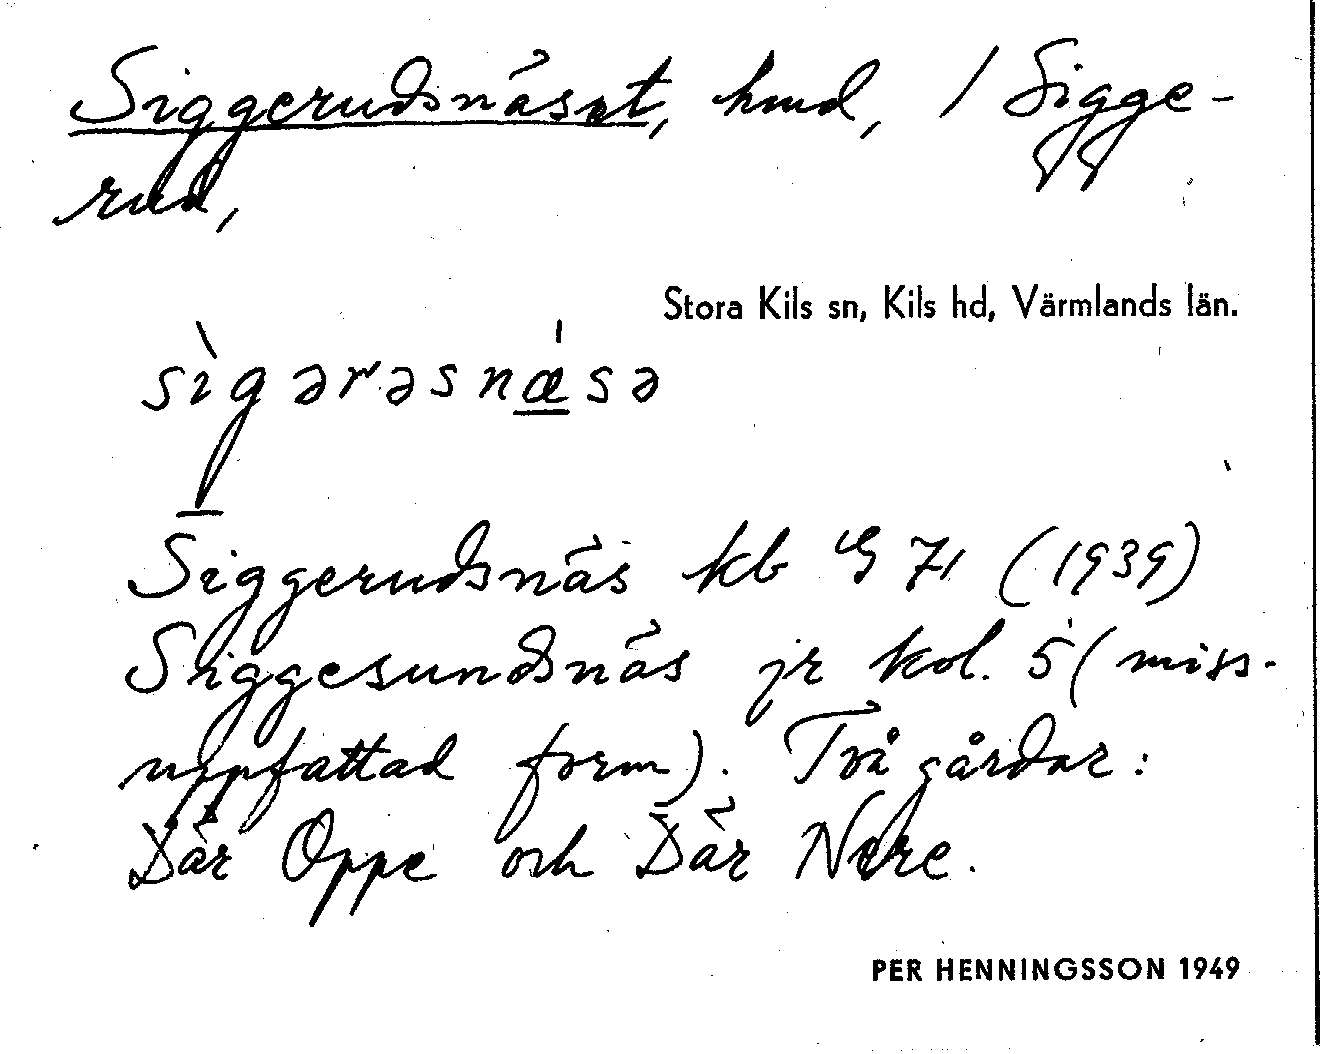 Siggerudsnäset, hmd, / Sigge-
rud,
Stora Kils sn, Kils hd, Värmlands län.
sìgərəsnǽsə
Siggerudsnäs kb G 71 (1939)
Siggesundsnäs jr kol. 5 (miss-
uppfattad form). Två gårdar:
Där Oppe och Där Nere.
PER HENNINGSSON 1949